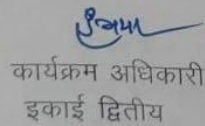 कार्यक्रम अधिकारी
इकाई द्वितीय